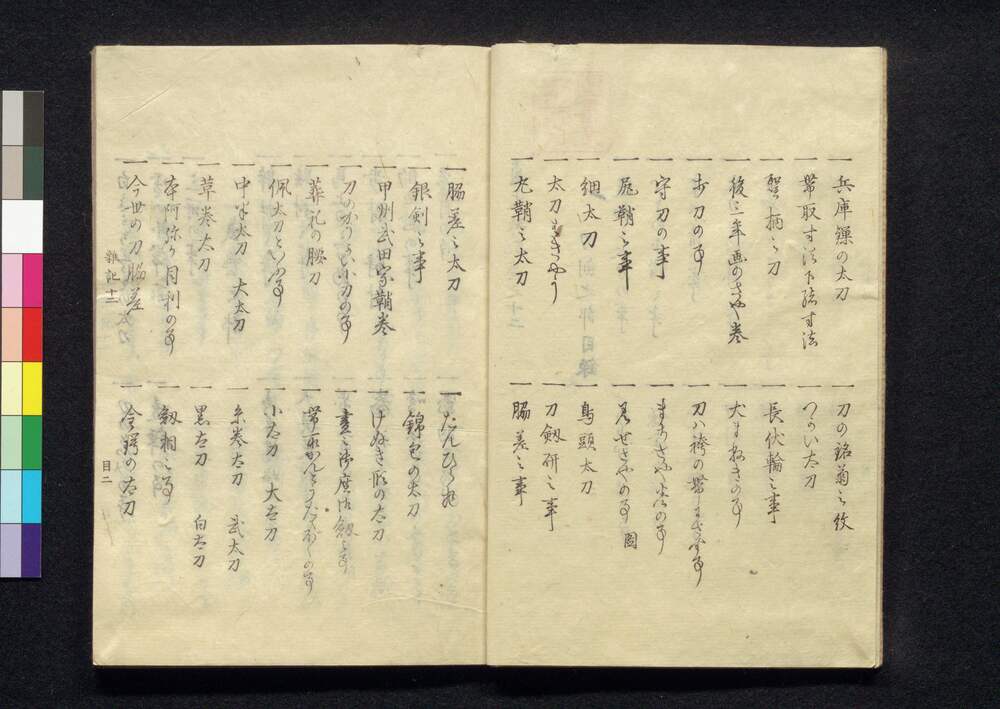 一 兵庫鏁の太刀
一 刀の銘菊之紋
一 帯取寸法下緒寸法
一 つかい太刀
一 柄之刀
一 長伏輪之事
一 後三年画のさや巻
一 犬まねきの事
一 刀の事
一 刀ハ袴の帯事
一 守刀の事
一 さやの事
一 尻鞘之事
一 見せさやの事 図
一 細太刀
一 鳥頭太刀
一 太刀まきやう
一 刀剱研之事
一 丸鞘之太刀
一 脇差之事
一 脇差之太刀
一 たんひら丸
一 銀剣之事
一 錦包の太刀
一 甲州武田家鞘巻
一 けぬき形の太刀
一 刀のかうがい小刀の事
一 昼之御座御剱之事
一 葬礼の腰刀
一 帯取の事
一 佩太刀といふ事
一 小太刀 大太刀
一 中半太刀 大太刀
一 糸巻太刀 武太刀
一 草巻太刀
一 黒太刀 白太刀
一 本阿弥か目利の事
一 剱相之事
一 今世の刀脇差
一 今鍔の太刀
雑記十二
目二